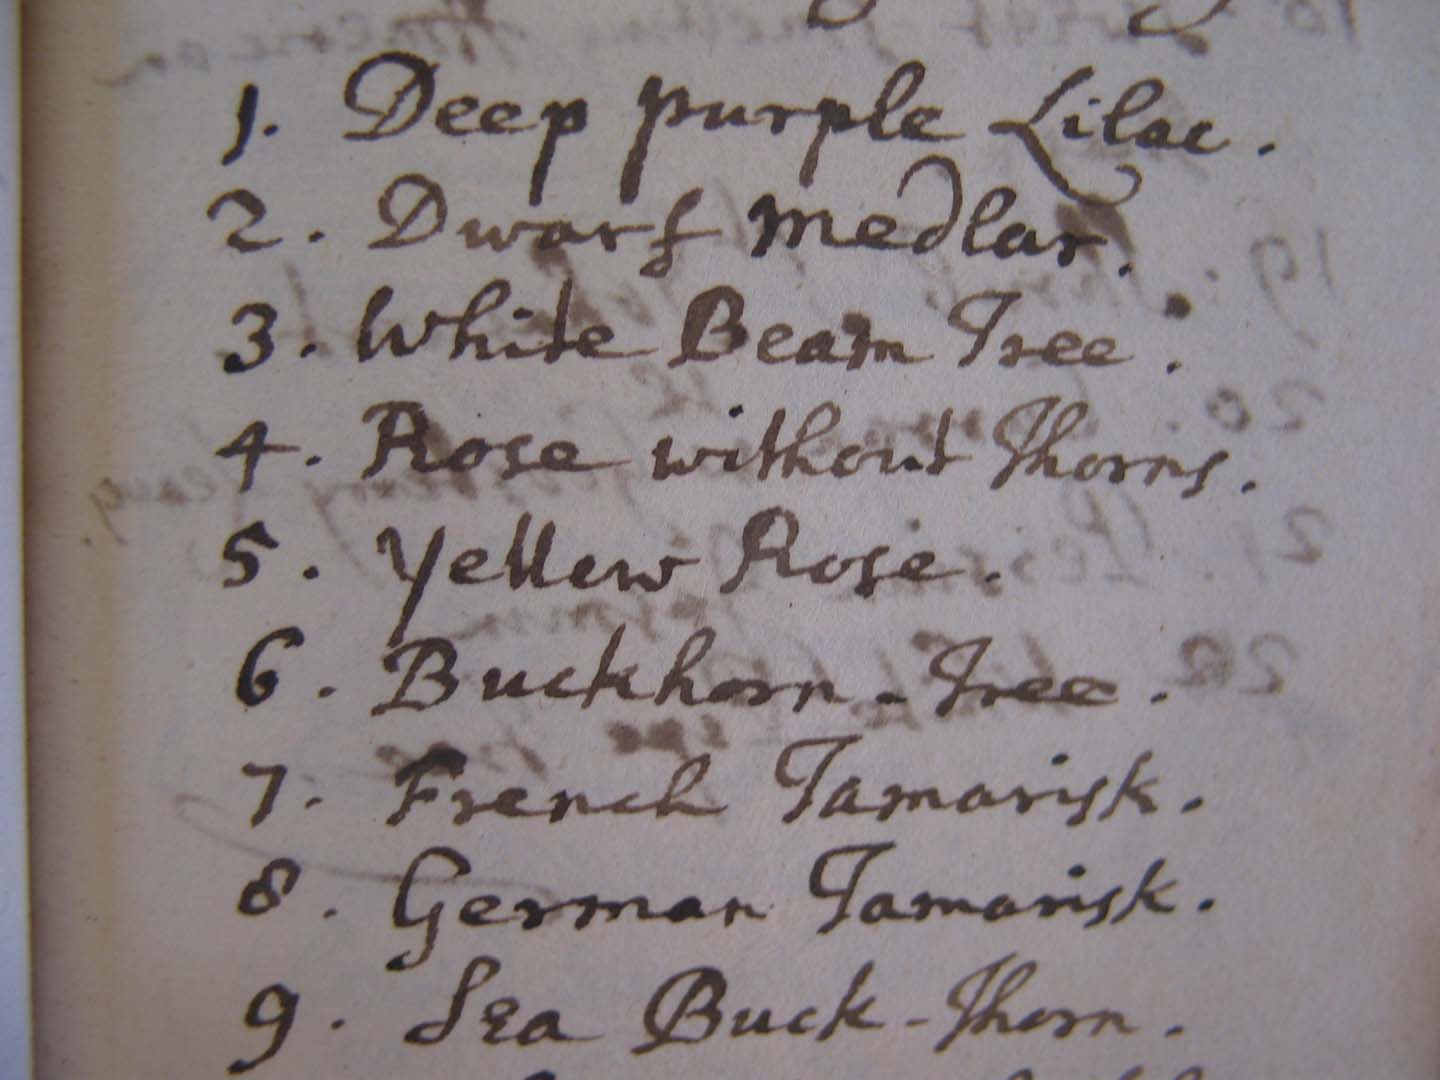 1. Deep purple Lilac.
2. Dwarf Medlar.
3. White Beam Tree.
4. Rose without Thorns.
5. Yellow Rose.
6. Buckhorn-Tree.
7. French Tamarisk.
8. German Tamarisk.
9. Sea Buck-Thorn.